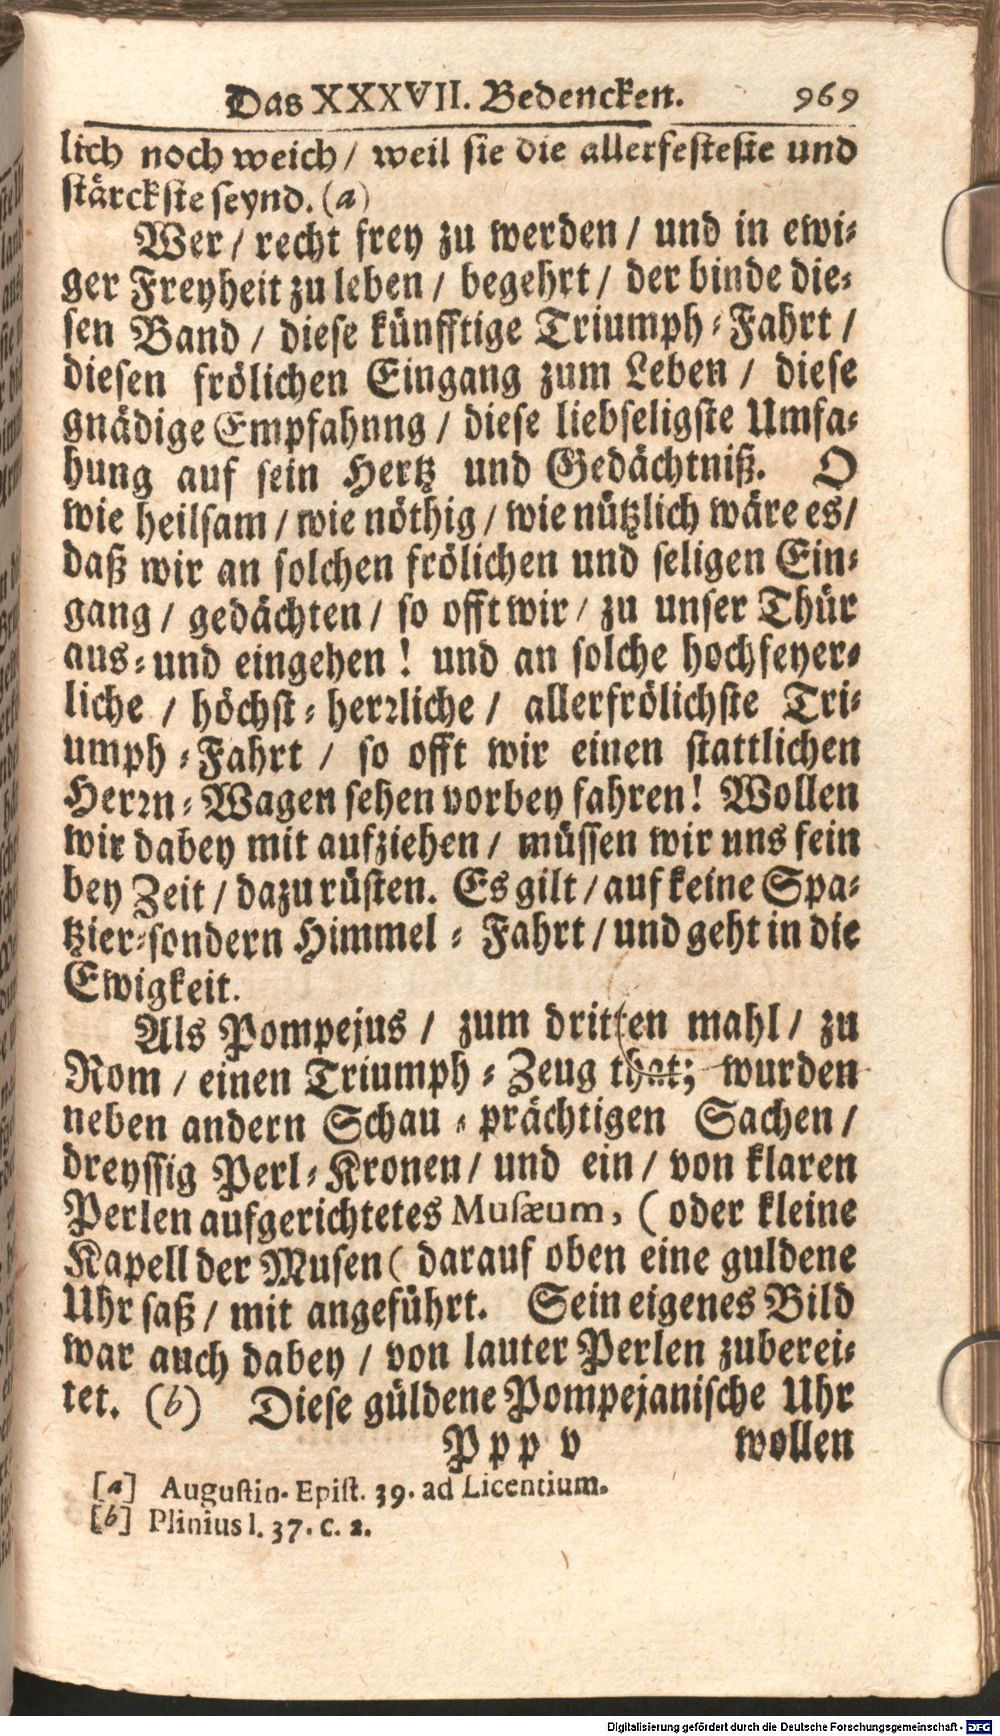 Das XXXVII. Bedencken. 969
lich noch weich / weil sie die allerfesteste und
stärckste seynd. (a)
Wer / recht frey zu werden / und in ewi-
ger Freyheit zu leben / begehrt / der binde die-
sen Band / diese künfftige Triumph-Fahrt /
diesen frölichen Eingang zum Leben / diese
gnädige Empfahung / diese liebseligste Umfa-
hung auf sein Hertz und Gedächtniß. O
wie heilsam / wie nöthig / wie nützlich wäre es /
daß wir an solchen frölichen und seligen Ein-
gang / gedächten / so offt wir / zu unser Thür
aus- und eingehen ! und an solche hochfeyer-
liche / höchst-herꝛliche / allerfrölichste Tri-
umph-Fahrt / so offt wir einen stattlichen
Herꝛn-Wagen sehen vorbey fahren! Wollen
wir dabey mit aufziehen / müssen wir uns fein
bey Zeit / dazu rüsten. Es gilt / auf keine Spa-
tzier-sondern Himmel-Fahrt / und geht in die
Ewigkeit.
Als Pompejus / zum dritten mahl / zu
Rom / einen Triumph-Zeug that; wurden
neben andern Schau-prächtigen Sachen /
dreyssig Perl-Kronen / und ein / von klaren
Perlen aufgerichtetes Musæum, ( oder kleine
Kapell der Musen( darauf oben eine guldene
Uhr saß / mit angeführt. Sein eigenes Bild
war auch dabey / von lauter Perlen zuberei-
tet. (b) Diese güldene Pompejanische Uhr
Pppp v wollen
[a] Augustin. Epist. 39. ad Licentium.
[b] Plinius l. 37. c. 2.
Digitalisierung gefördert durch die Deutsche Forschungsgemeinschaft - DFG